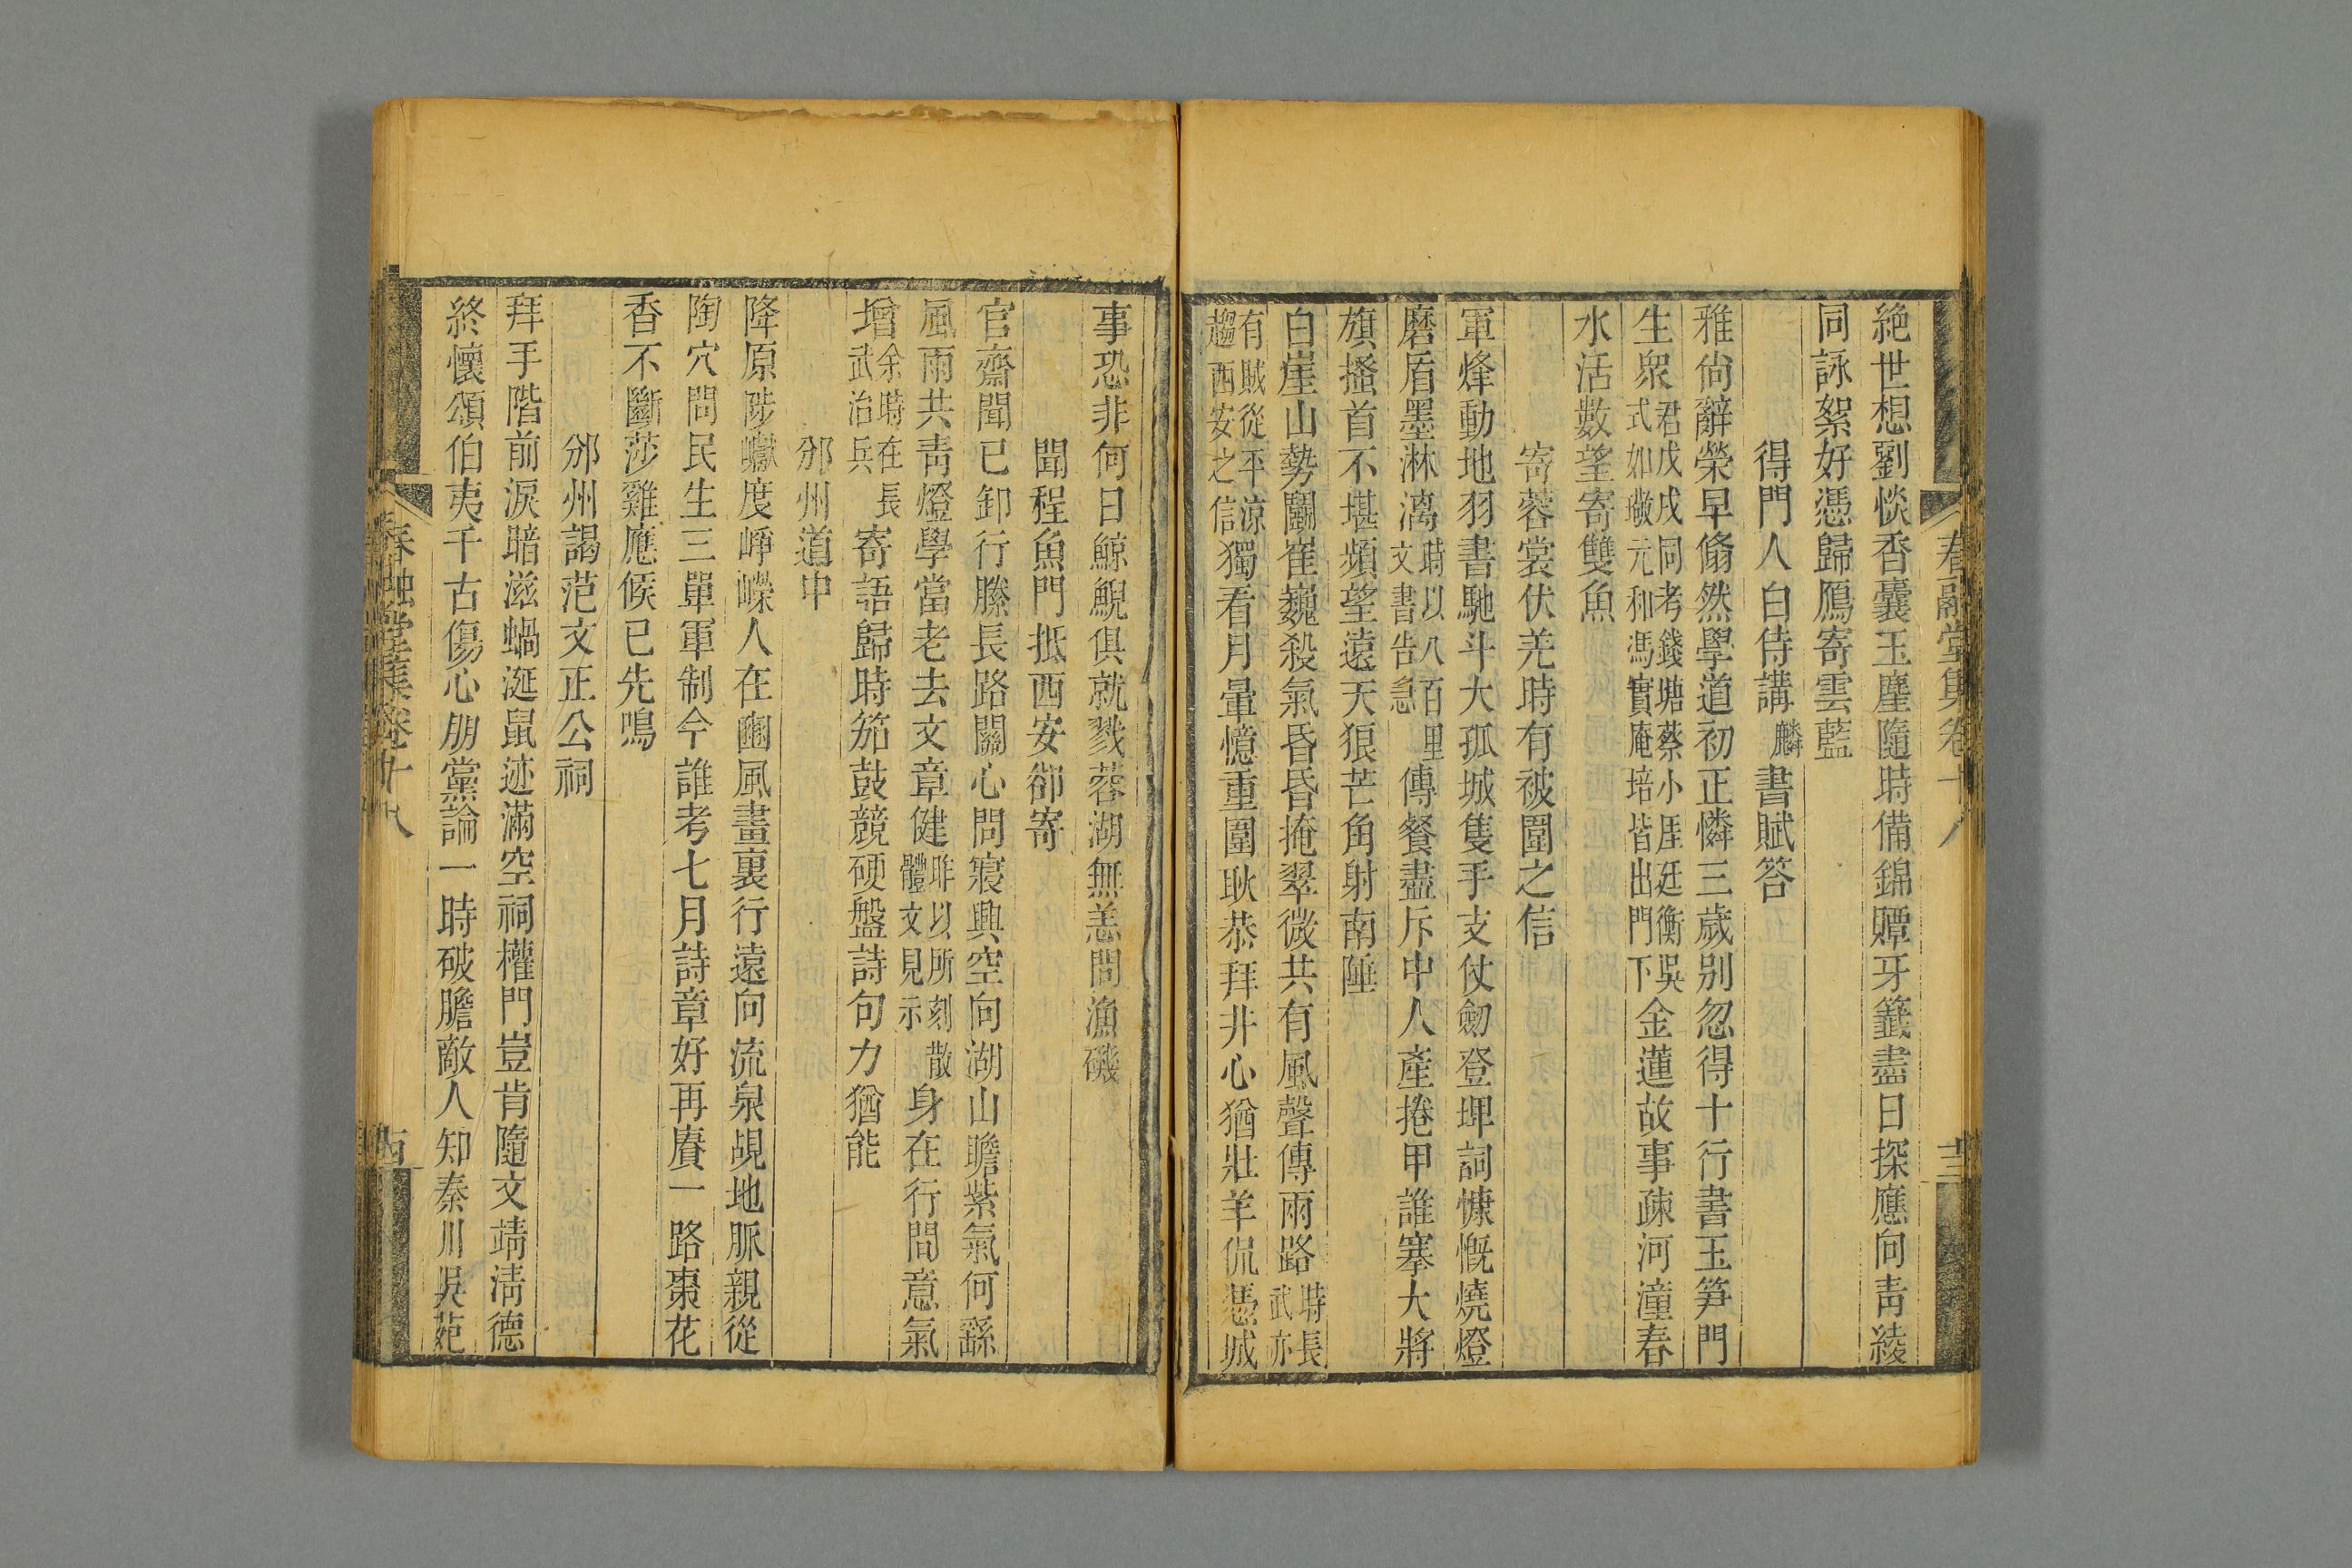 春融堂集卷十八
十三
絶世想劉惔香囊玉麈隨時備錦贉牙籤盡日探應向靑綾
同詠絮好憑歸鴈寄雲藍
得門人白侍講麟書賦答
雅尙辭榮早翛然學道初正憐三歲別忽得十行書玉笋門
生衆君戊戌同考錢塘蔡小厓廷衡吳式如璥元和馮實庵培皆出門下金蓮故事疎河潼春
水活數望寄雙魚
寄蓉裳伏羌時有被圍之信
軍烽動地羽書馳斗大孤城隻手支仗劒登埤詞慷慨燒燈
磨盾墨淋漓時以八百里文書告急傳餐盡斥中人產捲甲誰搴大將
旗搔首不堪頻望遠天狼芒角射南陲
白崖山勢鬬崔巍殺氣昏昏掩翠微共有風聲傳雨路時長武亦
有賊從平凉趨西安之信獨看月暈憶重圍耿恭拜井心猶壯羊侃憑城
事恐非何日鯨鯢俱就戮蓉湖無恙問漁磯
聞程魚門抵西安卻寄
官齋聞已卸行縢長路關心問寢興空向湖山瞻紫氣何繇
風雨共靑燈學當老去文章健昨以所刻散體文見示身在行間意氣
增余時在長武治兵寄語歸時笳鼓競硬盤詩句力猶能
邠州道中
降原陟巘度崢嶸人在豳風畫裏行遠向流泉覘地脈親從
陶穴問民生三單軍制今誰考七月詩章好再賡一路棗花
香不斷莎雞應候已先鳴
邠州謁范文正公祠
拜手階前淚暗滋蝸涎鼠迹滿空祠權門豈肯隨文靖淸德
終懷頌伯夷千古傷心朋黨論一時破膽敵人知秦川吳苑
春融堂集卷十八
十四